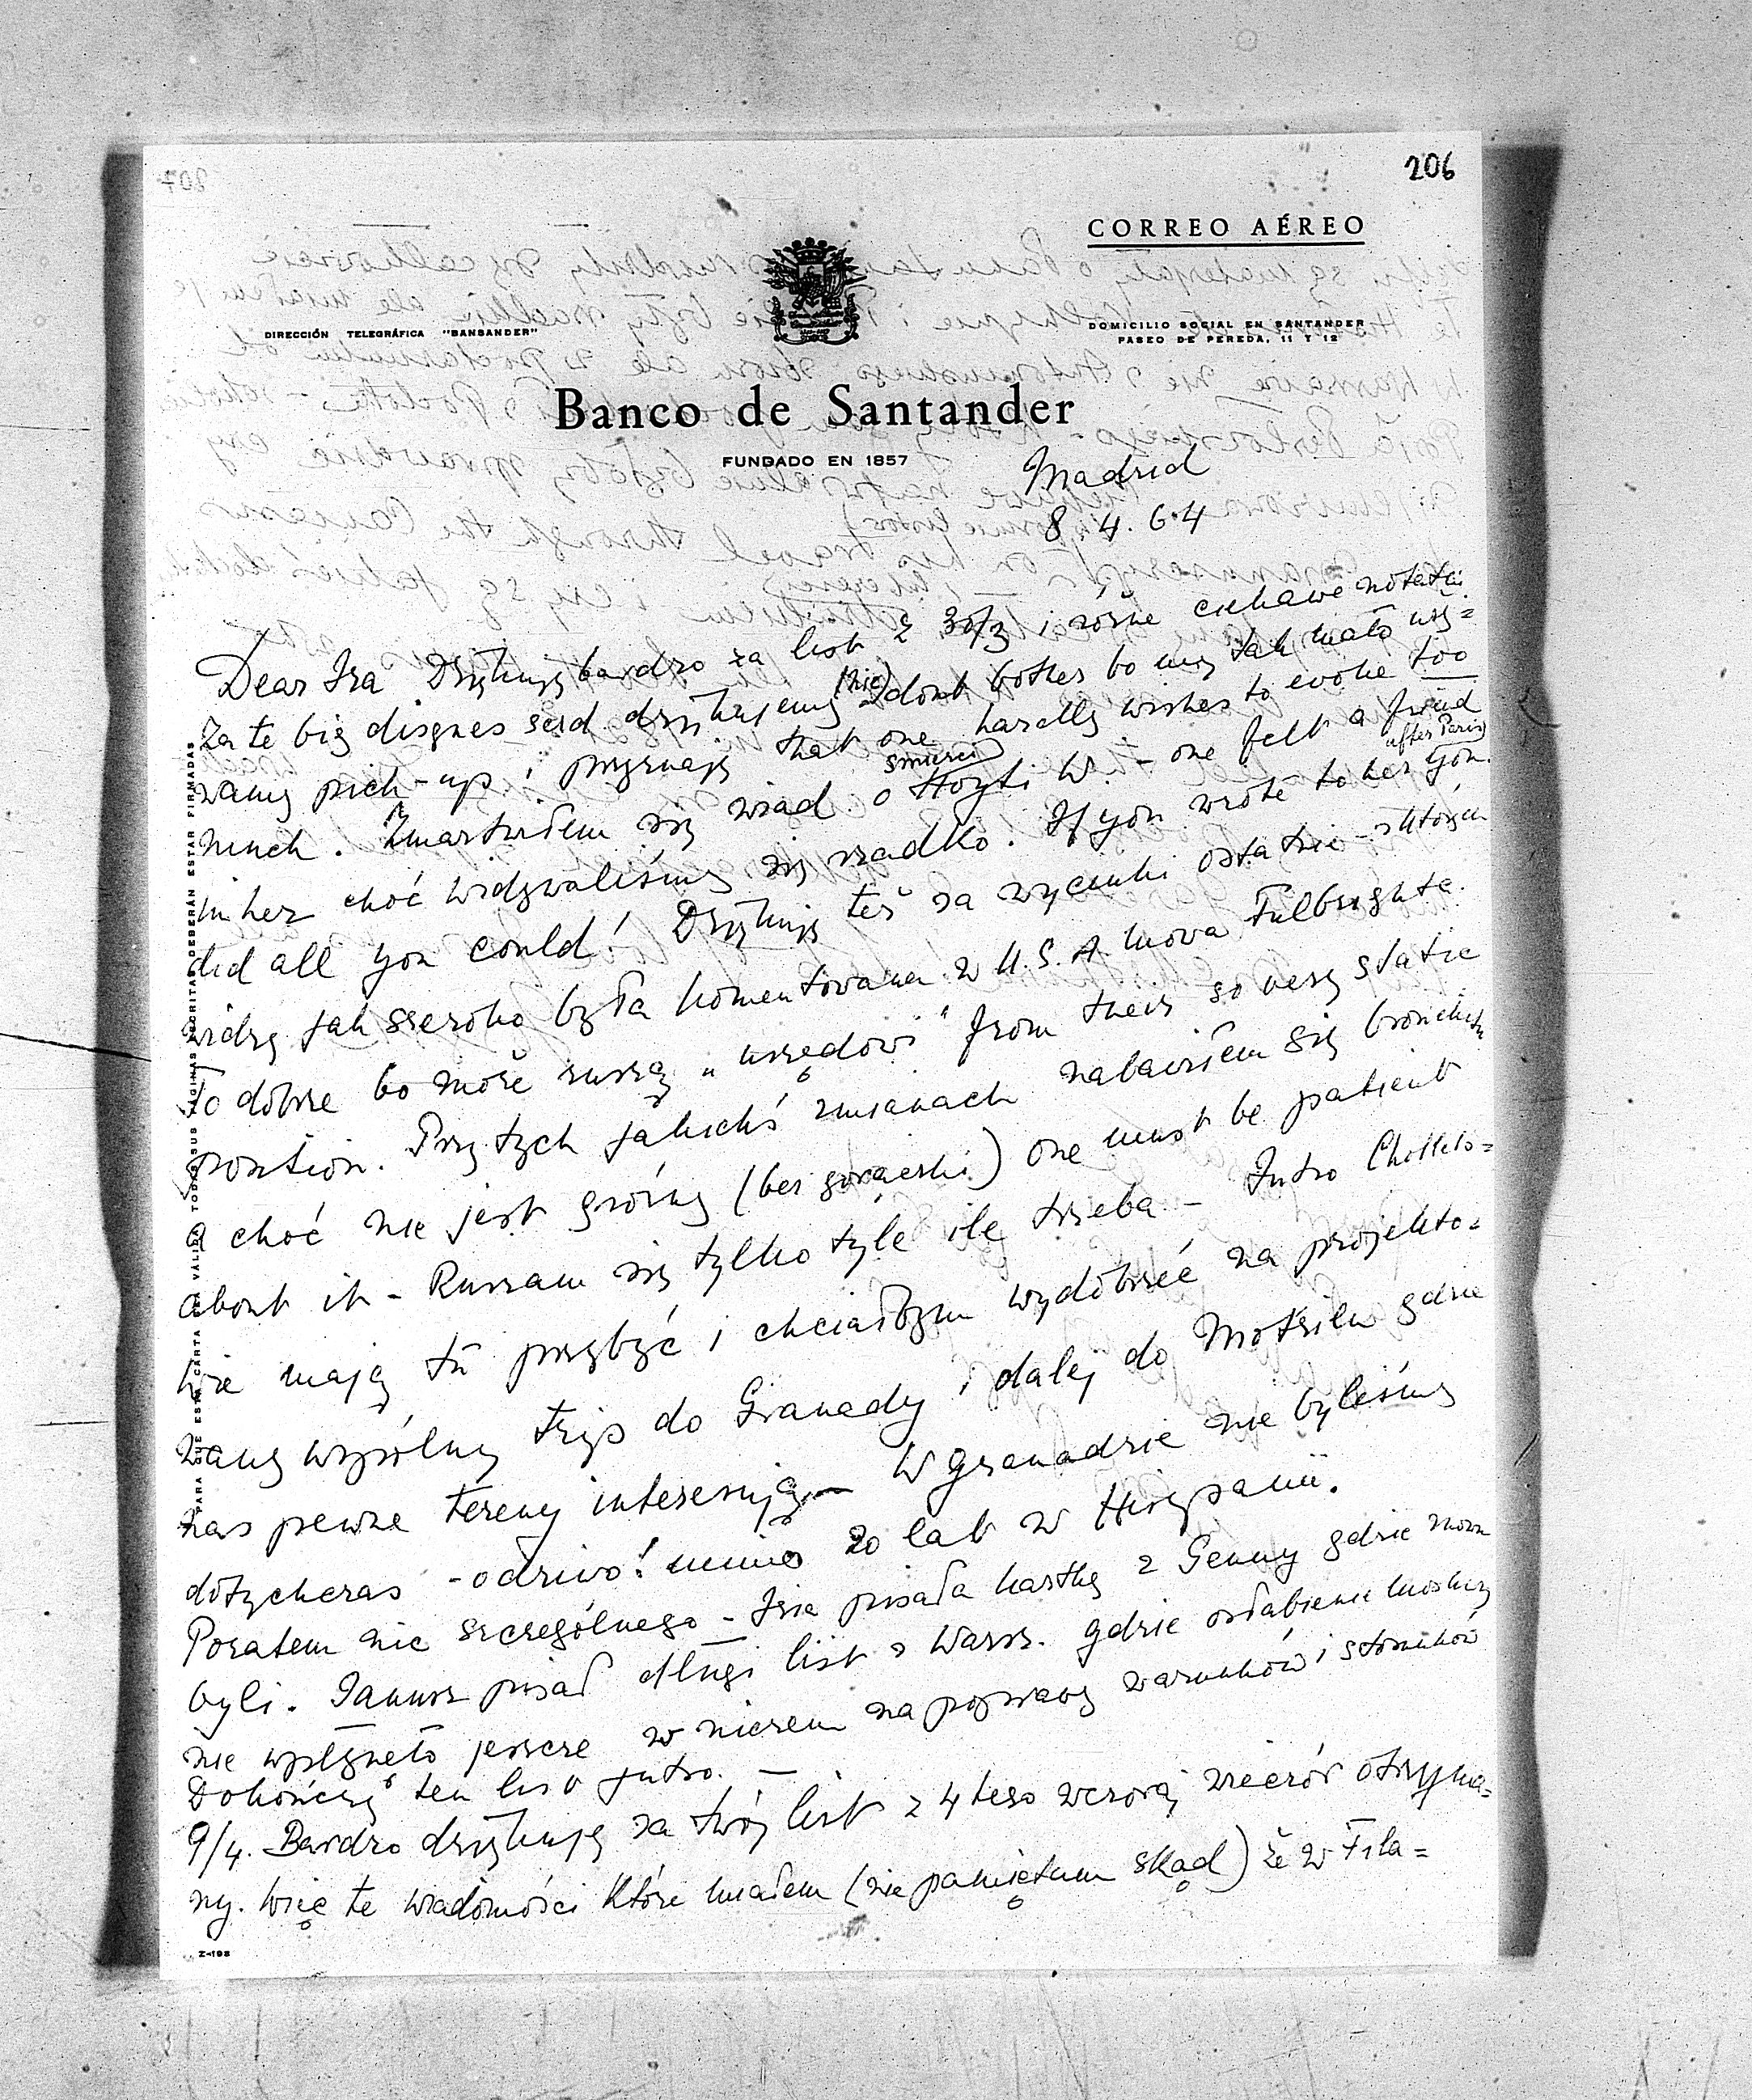 206
CORREO AÉREO
DIRECCIÓN TELEGRÁFICA "BANSANDER"
DOMICILIO SOCIAL EN SANTANDER
PASEO DE PEREDA, 11 Y 12
Banco de Santander
FUNDADO EN 1857
Madrid
8. 4. 64
Dear Ira Dziękuję bardzo za list z 30/3 i różne ciekawe notatki.
Za te big disques serd dziękujemy (nie) dont bother bo my tak mało uży=
wamy pick-up i przyznaję that one hardly wishes to evoke too
much. Zmartwiłem się wiad. o śmierci W. – one felt a friend
in her choć widywaliśmy się rzadko. If you wrote to her after Paris you
did all you could! Dziękuję też za wycinki ostatnie – z których
widzę jak szeroko była komentowana w U.S.A. mowa Fulbrighta.
To dobrze bo może ruszą „urzędowi" from their so very static
position. Przy tych jakichś zmianach nabawiłem się bronchitu
a choć nie jest groźny (bez gorączki) one must be patient
about it – Ruszam się tylko tyle ile trzeba – Jutro
mają tu przybyć i chciałbym wydobrzeć na projekto=
wany wspólny trip do Granady i dalej do Motrilu gdzie
nas pewne tereny interesują – W Granadzie nie byliśmy
dotychczas – o dziwo! mimo 20 lat w Hiszpanii.
Pozatem nic szczególnego – Isia pisała kartkę z Genuy gdzie znów
byli. Janusz pisał długi list z Warsz. gdzie osłabienie Moskwy
nie wpłynęło jeszcze w niczem na poprawę warunków i stosunków
Dokończę ten list jutro. –
9/4. Bardzo dziękuję za twój list z 4tego wczoraj wieczór otrzyma=
ny. Więc te wiadomości które miałem (nie pamiętam skąd) że w Fila=
Z-198